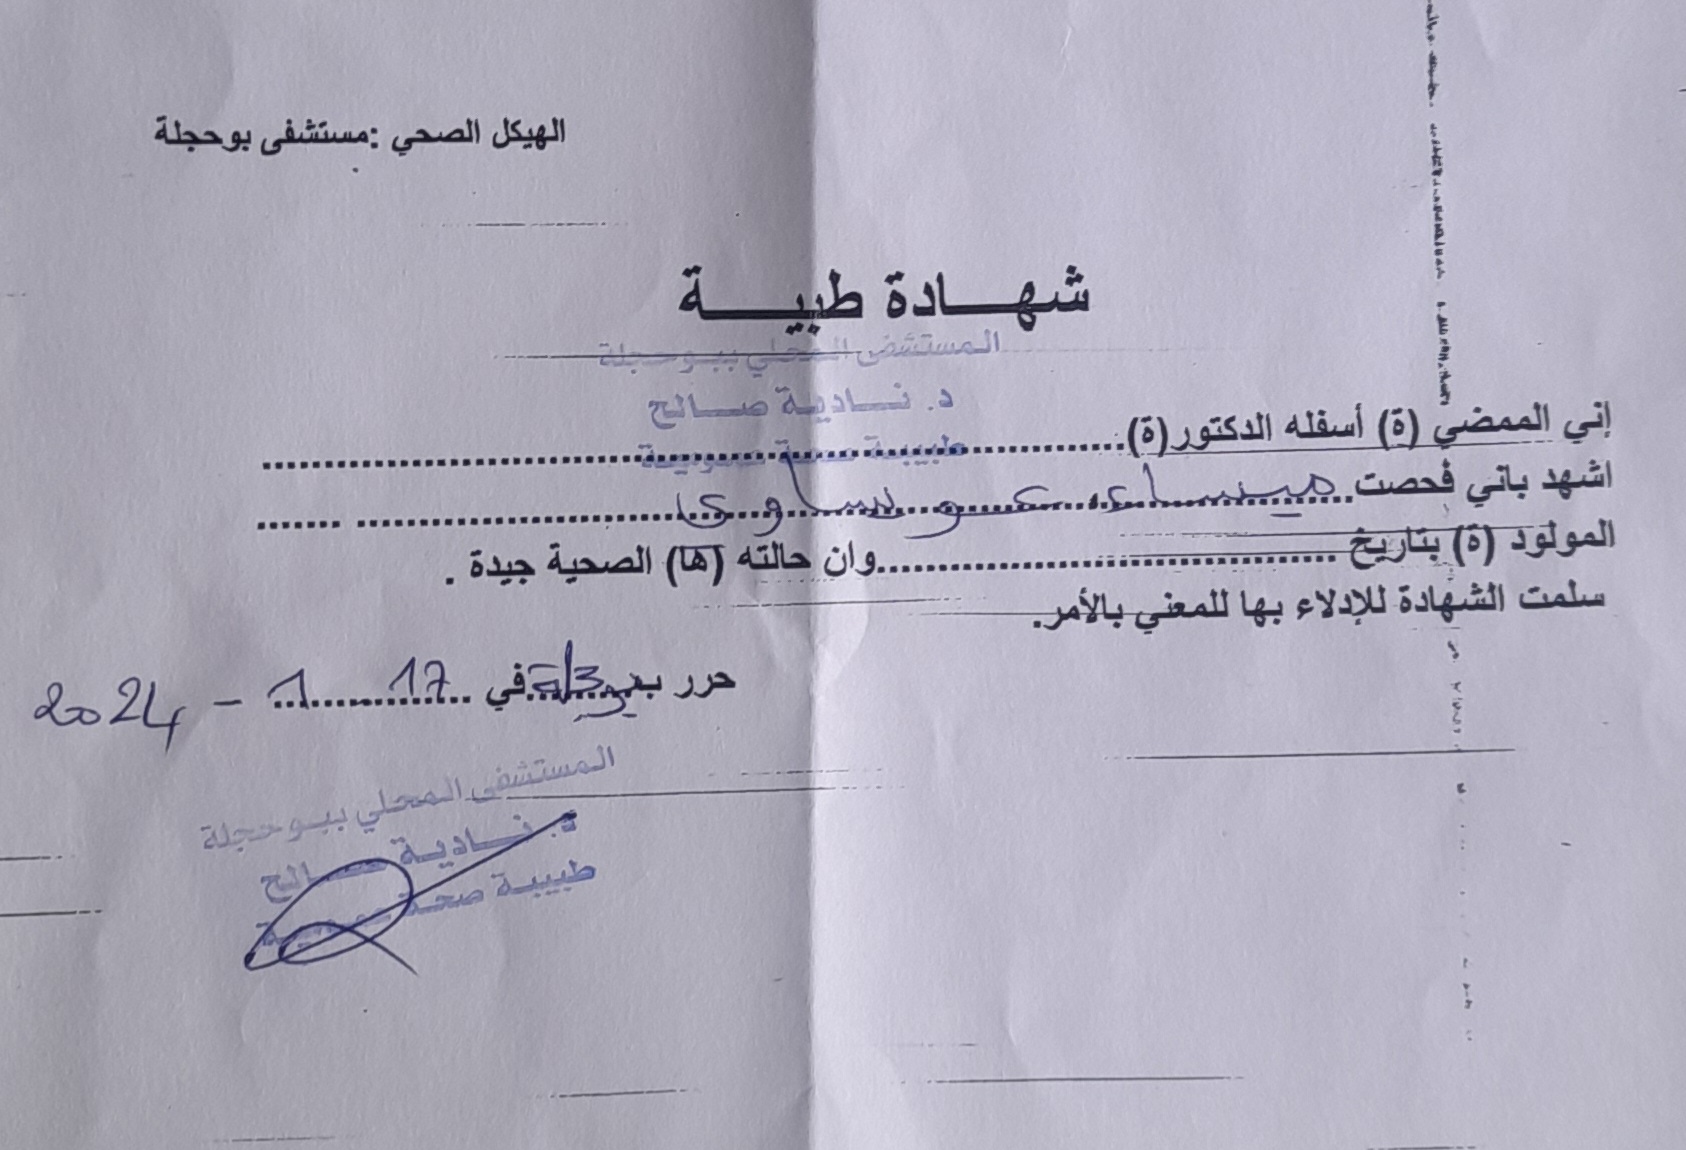 الهيكل الصحي :مستشفى بوحجلة
شهـــادة طبيـــة
المستشفى المحلي ببوحجلة
د. ناديـة صـالح
إني الممضي (ة) أسفله الدكتور(ة)
طبيبة
اشهد باني فحصت
المولود (ة) بتاريخ وان حالته (ها) الصحية جيدة .
سلمت الشهادة للإدلاء بها للمعني بالأمر.
حرر ب في 17 1 - 2024
المستشفى المحلي ببوحجلة
د. ناديـة صـالح
طبيبـة صحة